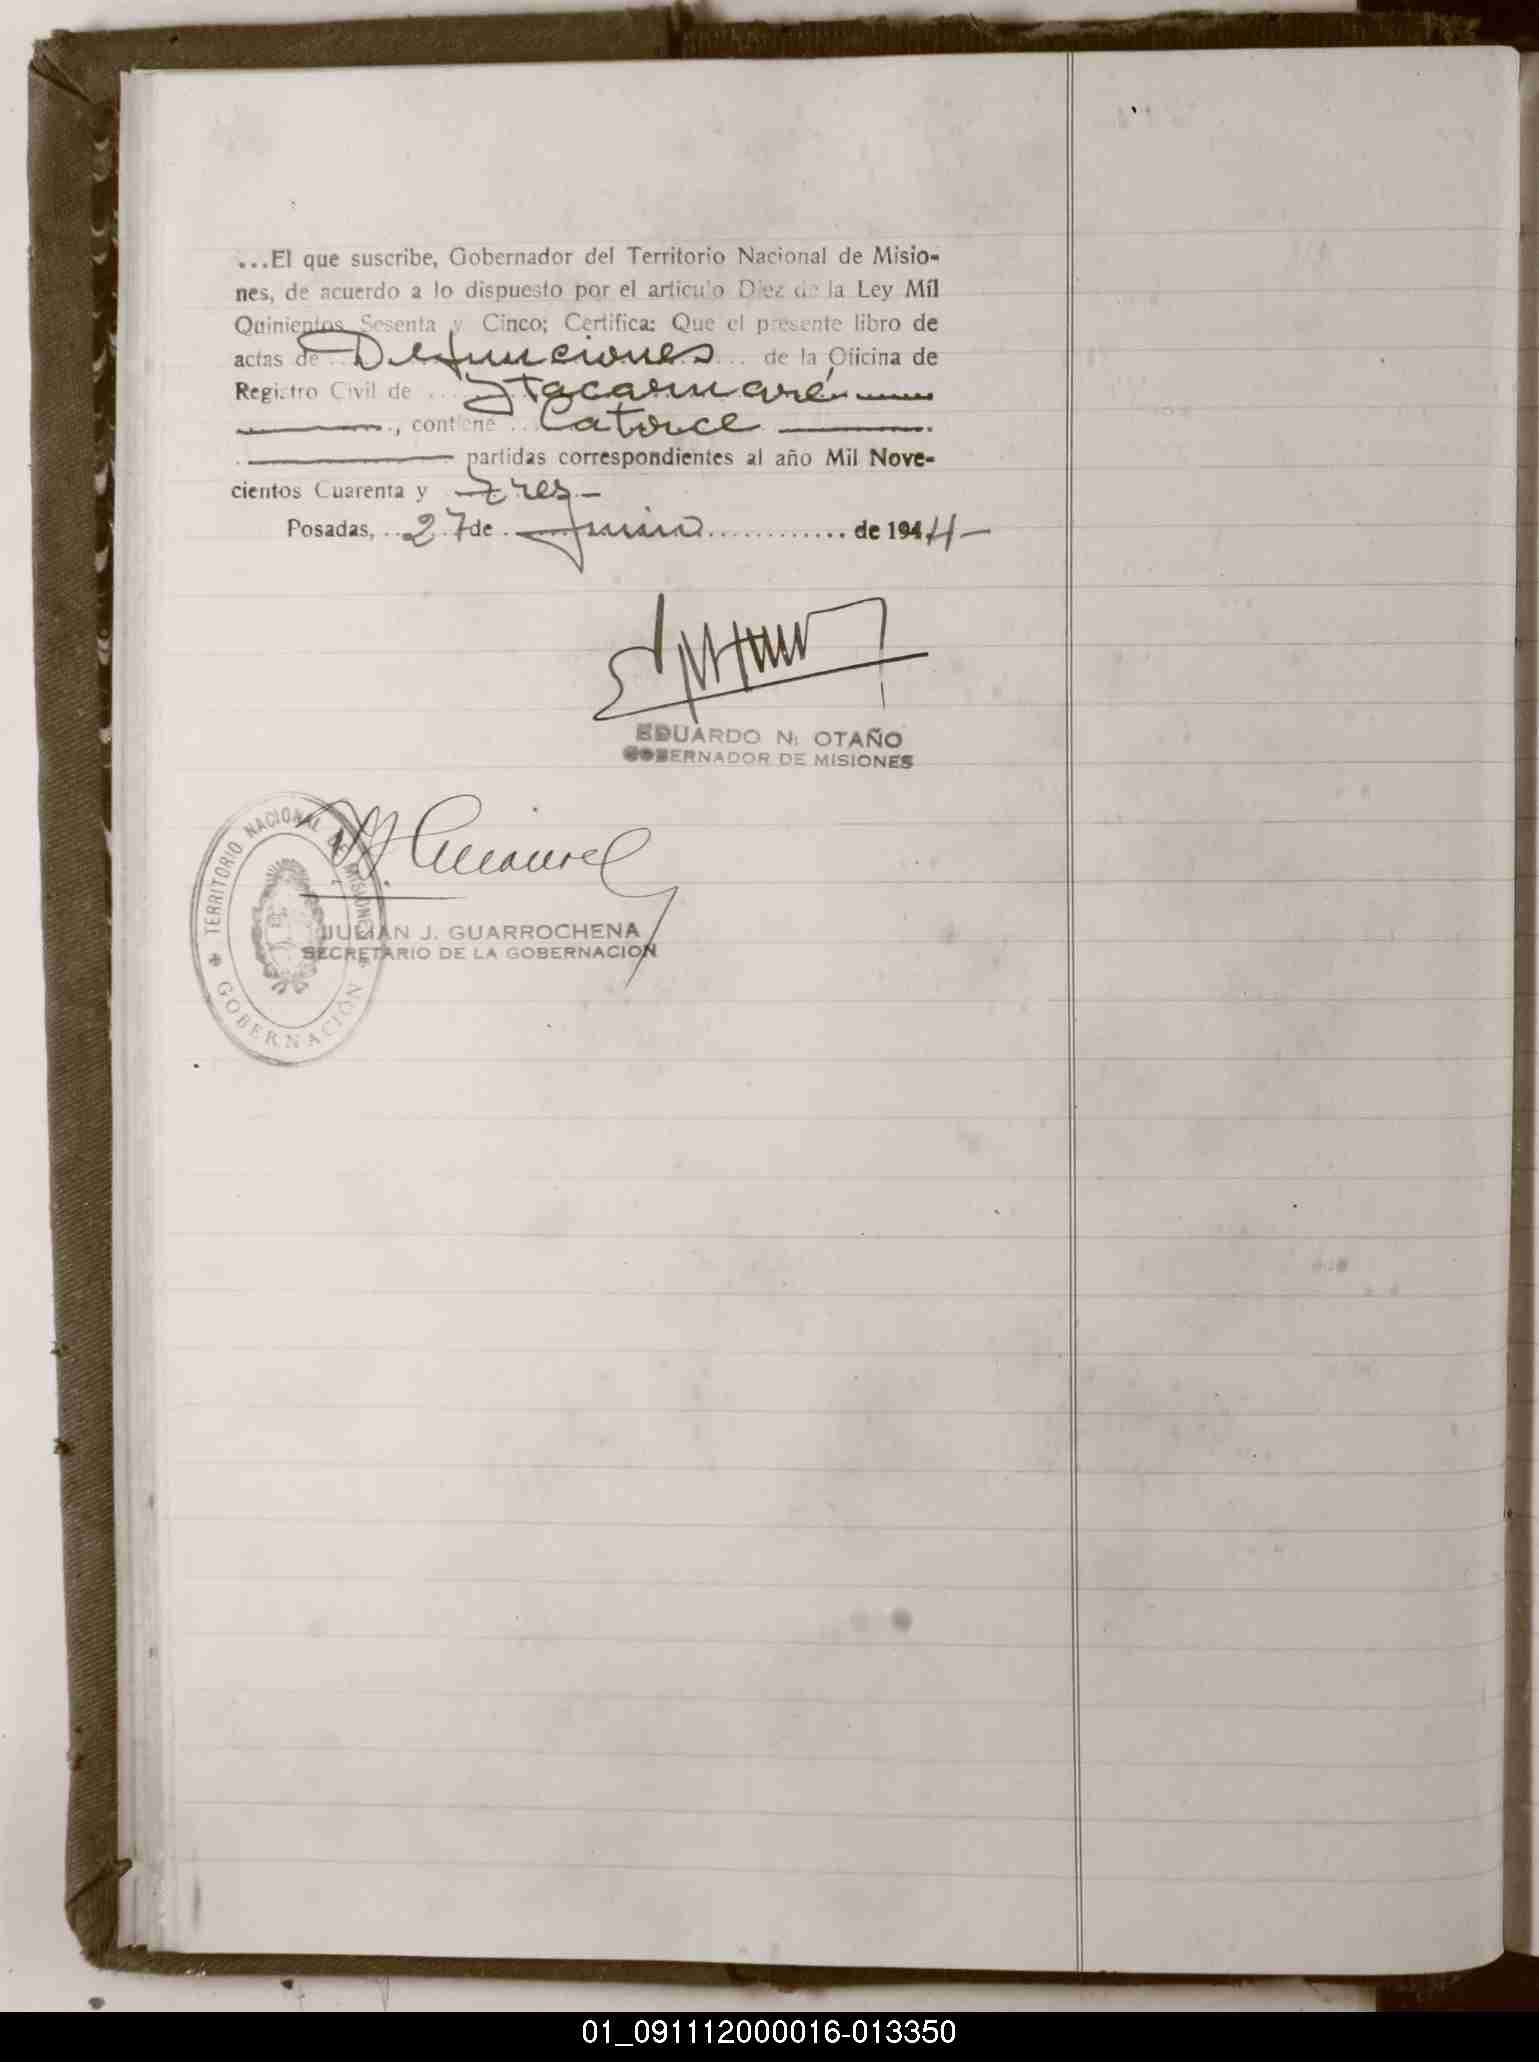 ...El que suscribe, Gobernador del Territorio Nacional de Misio-
nes, de acuerdo a lo dispuesto por el artículo Diez de la Ley Mil
Quinientos Sesenta y Cinco; Certifica: Que el presente libro de
actas de Defunciones ... de la Oficina de
Registro Civil de ... Itacaruaré
., contiene ... Catorce
partidas correspondientes al año Mil Nove-
cientos Cuarenta y tres
Posadas, 27 de Junio ............ de 1944
EDUARDO N. OTAÑO
GOBERNADOR DE MISIONES
TERRITORIO NACIONAL DE MISIONES
GOBERNACIÓN
JULIAN J. GUARROCHENA
SECRETARIO DE LA GOBERNACION
01_091112000016-013350